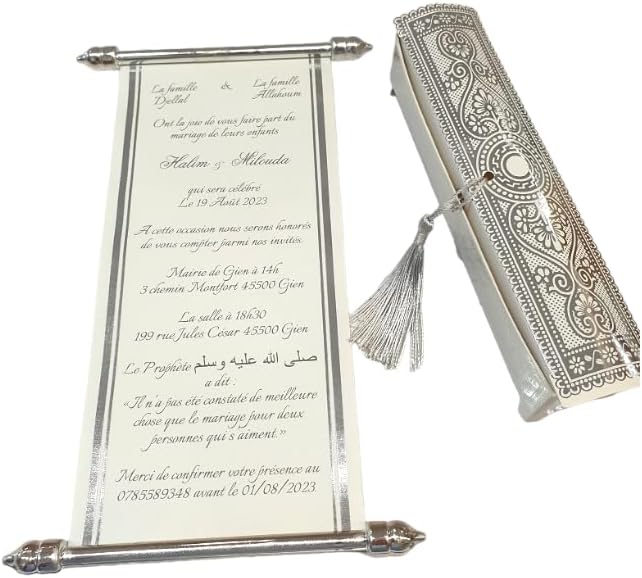 La famille & La famille
Djellal Allahoum
Ont la joie de vous faire part du
mariage de leurs enfants
Halim & Milouda
qui sera célébré
Le 19 Août 2023
A cette occasion nous serons honorés
de vous compter parmi nos invités.
Mairie de Gien à 14h
3 chemin Montfort 45500 Gien
La salle à 18h30
199 rue Jules César 45500 Gien
Le Prophète صلى الله عليه وسلم
a dit :
«Il n'a pas été constaté de meilleure
chose que le mariage pour deux
personnes qui s'aiment.»
Merci de confirmer votre présence au
0785589348 avant le 01/08/2023